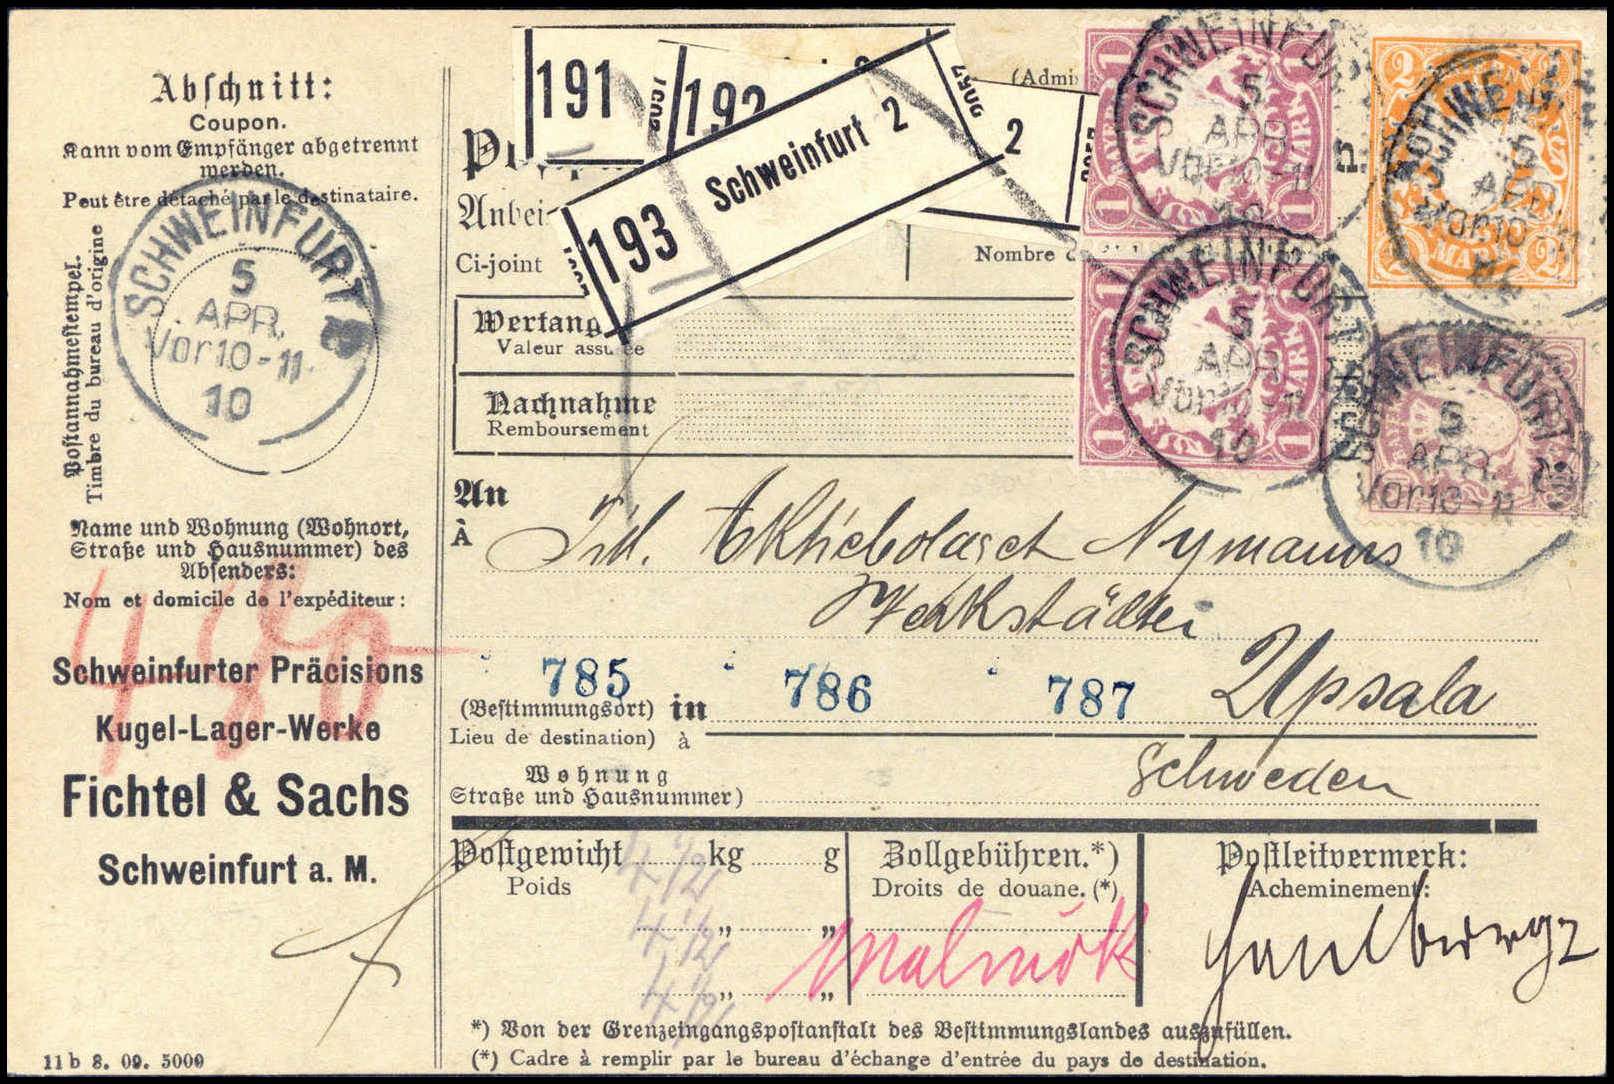 Abschnitt:
Coupon.
Kann vom Empfänger abgetrennt
werden.
Peut être détaché par le destinataire.
Postannahmestempel.
Timbre du bureau d'origine
SCHWEINFURT 2
5
APR.
Vor 10-11
10
Name und Wohnung (Wohnort,
Straße und Hausnummer) des
Absenders:
Nom et domicile de l'expéditeur:
480
Schweinfurter Präcisions
Kugel-Lager-Werke
Fichtel & Sachs
Schweinfurt a. M.
11 b 8. 09. 5000
191
192
193 Schweinfurt 2
2
(Admi
Anbei
Ci-joint
Nombre
Wertang
Valeur assurée
Nachnahme
Remboursement
1 BAYERN 1
1 MARK 1
SCHWEINFURT
5
APR.
Vor 10-11
10
2 BAYERN 2
2 MARK 2
SCHWEINFURT
5
APR.
Vor 10
1 BAYERN 1
1 MARK 1
SCHWEINFURT
5
APR.
Vor 10-11
10
SCHWEINFURT 2
5
APR.
Vor 10-11
10
An
À
Aktiebolaget Nymanns
Werkstäder
785 786 787
(Bestimmungsort) in Upsala
Lieu de destination) à
Schweden
Wohnung
Straße und Hausnummer)
Postgewicht kg g
Poids
4 1/2
4 1/2
4 1/2
Zollgebühren.*)
Droits de douane. (*)
Postleitvermerk:
Acheminement:
*) Von der Grenzeingangspostanstalt des Bestimmungslandes auszufüllen.
(*) Cadre à remplir par le bureau d'échange d'entrée du pays de destination.